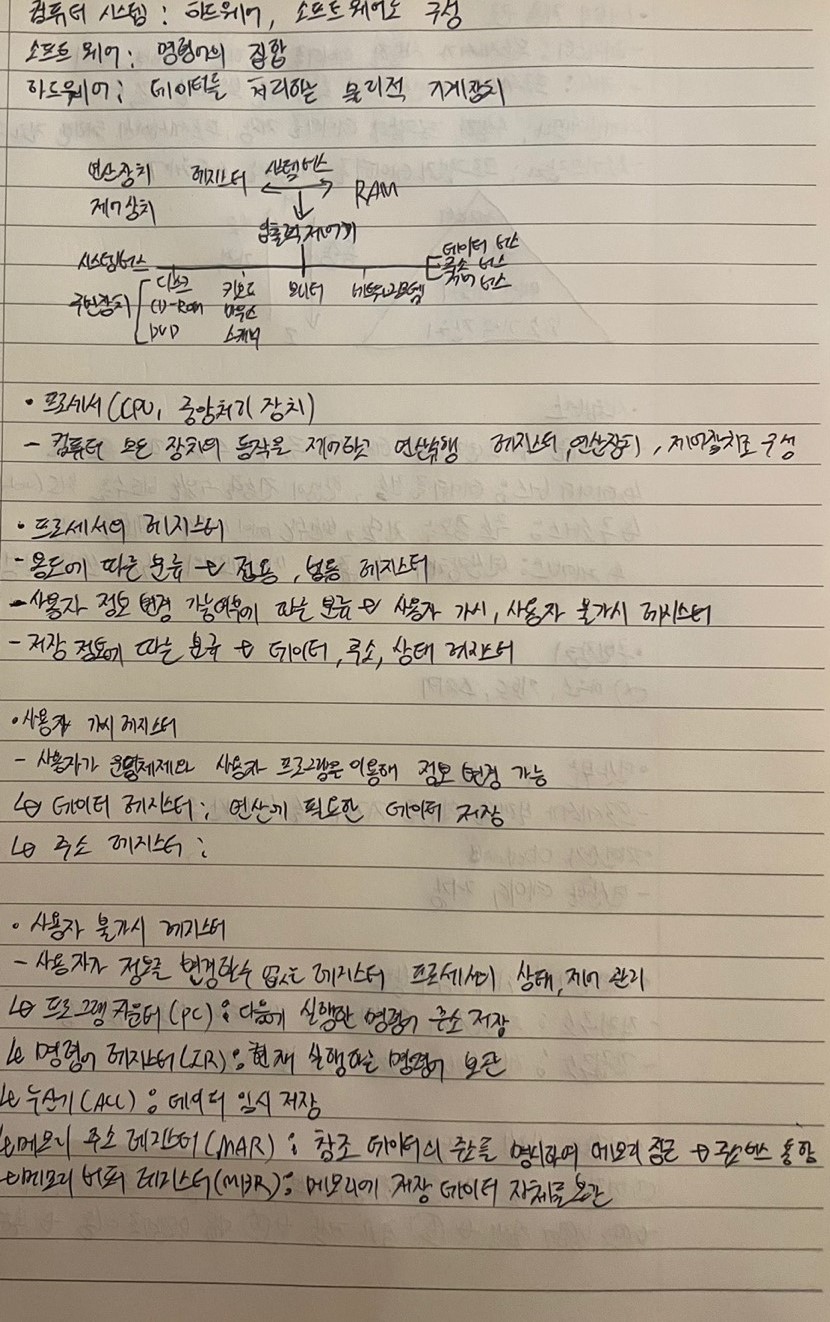 컴퓨터 시스템 : 하드웨어, 소프트웨어로 구성
소프트웨어 : 명령어의 집합
하드웨어 : 데이터를 처리하는 물리적 기계장치
연산장치 레지스터 시스템버스 RAM
제어장치
입출력제어기
시스템버스 데이터 버스
주소 버스
제어 버스
주변장치 디스크 키보드 모니터 네트워크모뎀
CD-ROM 마우스
DVD 스캐너
• 프로세서(CPU, 중앙처리 장치)
- 컴퓨터 모든 장치의 동작을 제어하고 연산수행 레지스터, 연산장치, 제어장치로 구성
• 프로세서의 레지스터
- 용도에 따른 분류 → 전용, 범용 레지스터
- 사용자 정보 변경 가능여부에 따른 분류 → 사용자 가시, 사용자 불가시 레지스터
- 저장 정보에 따른 분류 → 데이터, 주소, 상태 레지스터
• 사용자 가시 레지스터
- 사용자가 운영체제와 사용자 프로그램을 이용해 정보 변경 가능
↳ 데이터 레지스터 : 연산에 필요한 데이터 저장
↳ 주소 레지스터 :
• 사용자 불가시 레지스터
- 사용자가 정보를 변경할수 없는 레지스터 프로세서의 상태, 제어 관리
↳ 프로그램 카운터(PC) : 다음에 실행할 명령어 주소 저장
↳ 명령어 레지스터(IR) : 현재 실행하는 명령어 보관
↳ 누산기(ACC) : 데이터 임시 저장
↳ 메모리 주소 레지스터(MAR) : 참조 데이터의 주소를 명시하여 메모리 접근 → 주소버스 통함
↳ 메모리 버퍼 레지스터(MBR) : 메모리에 저장 데이터 자체를 보관